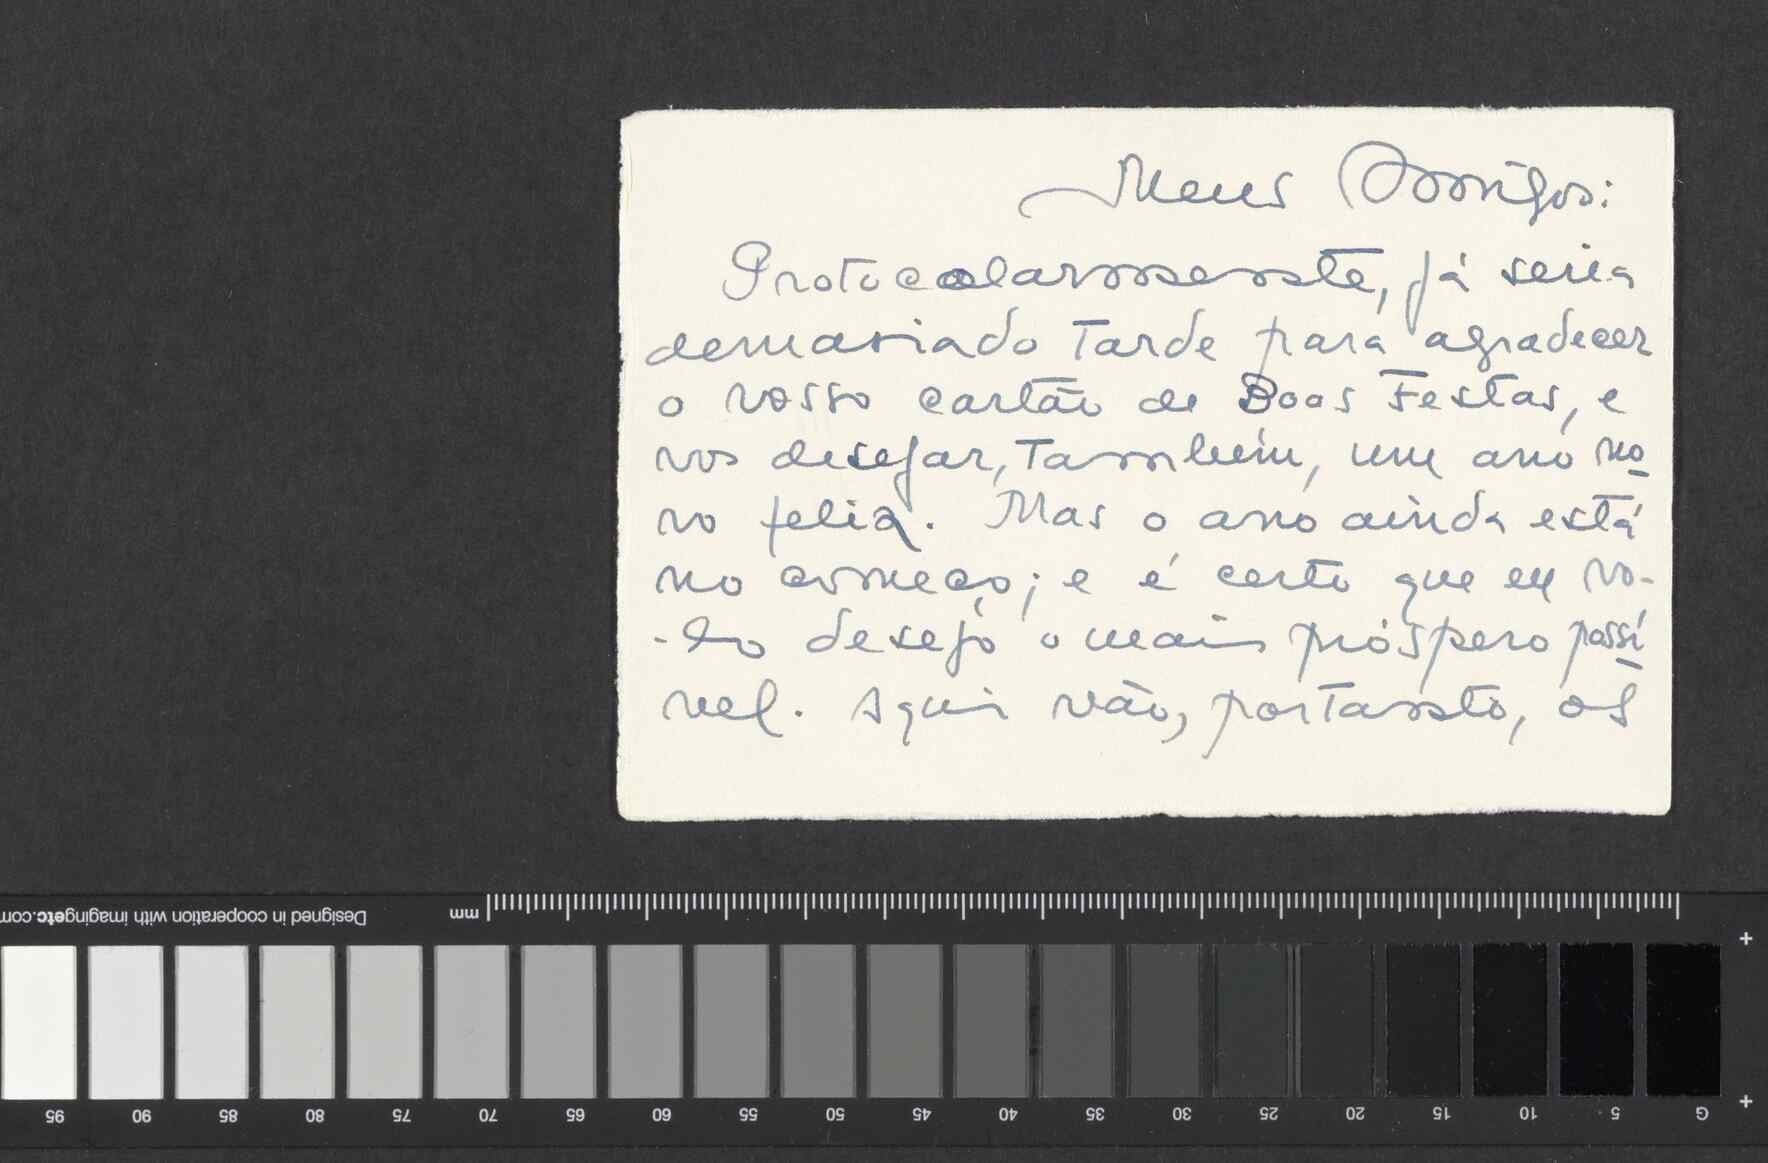 Meus Amigos:
Protocolarmente, já seria
demasiado tarde para agradecer
o vosso cartão de Boas Festas, e
vos desejar, também, um ano no
vo feliz. Mas o ano ainda está
no começo; e é certo que eu vo-
-lo desejo o mais próspero possí
vel. Aqui vão, portanto, os
Designed in cooperation with imagingetc.com
mm
95 90 85 80 75 70 65 60 55 50 45 40 35 30 25 20 15 10 5 G